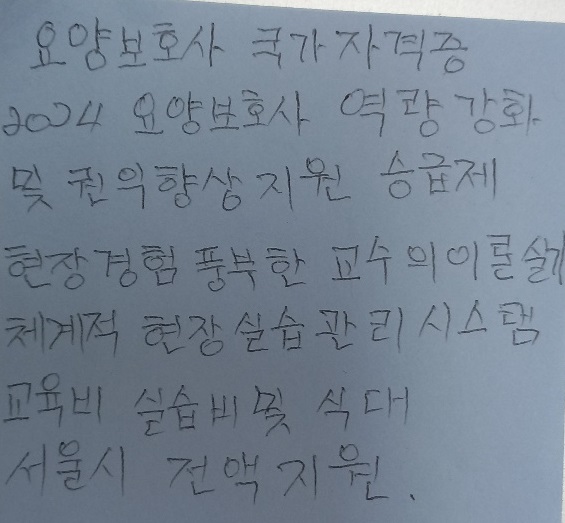 요양보호사 국가자격증
2024 요양보호사 역량강화
및 권익향상지원 승급제
현장경험풍부한 교수의이론실기
체계적 현장실습관리시스템
교육비 실습비및 식대
서울시 전액지원.